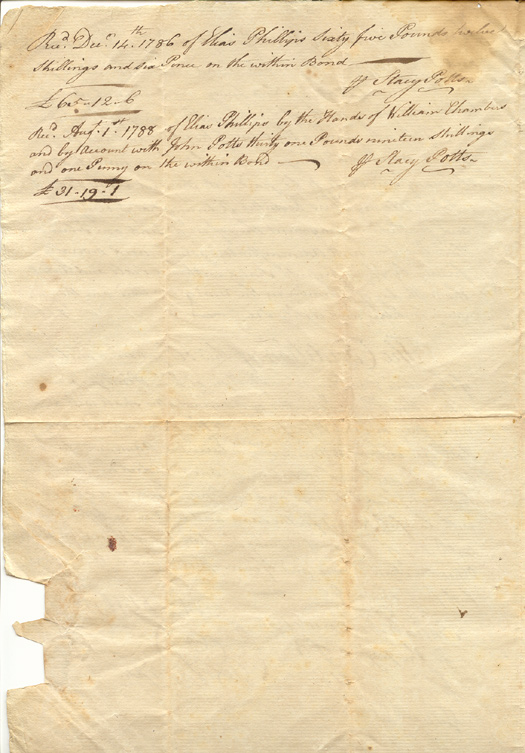 Rec.d Dec.r 14.th 1786 of Elias Phillips Sixty five Pounds twelve
Shillings and six Pence on the within Bond
Stacy Potts
£65-12-6
Rec.d Aug.t 1st 1788 of Elias Phillips by the Hands of William Chambers
and by Account with John Potts thirty one Pounds nineteen Shillings
and one Penny on the within Bond
Stacy Potts
£31-19-1